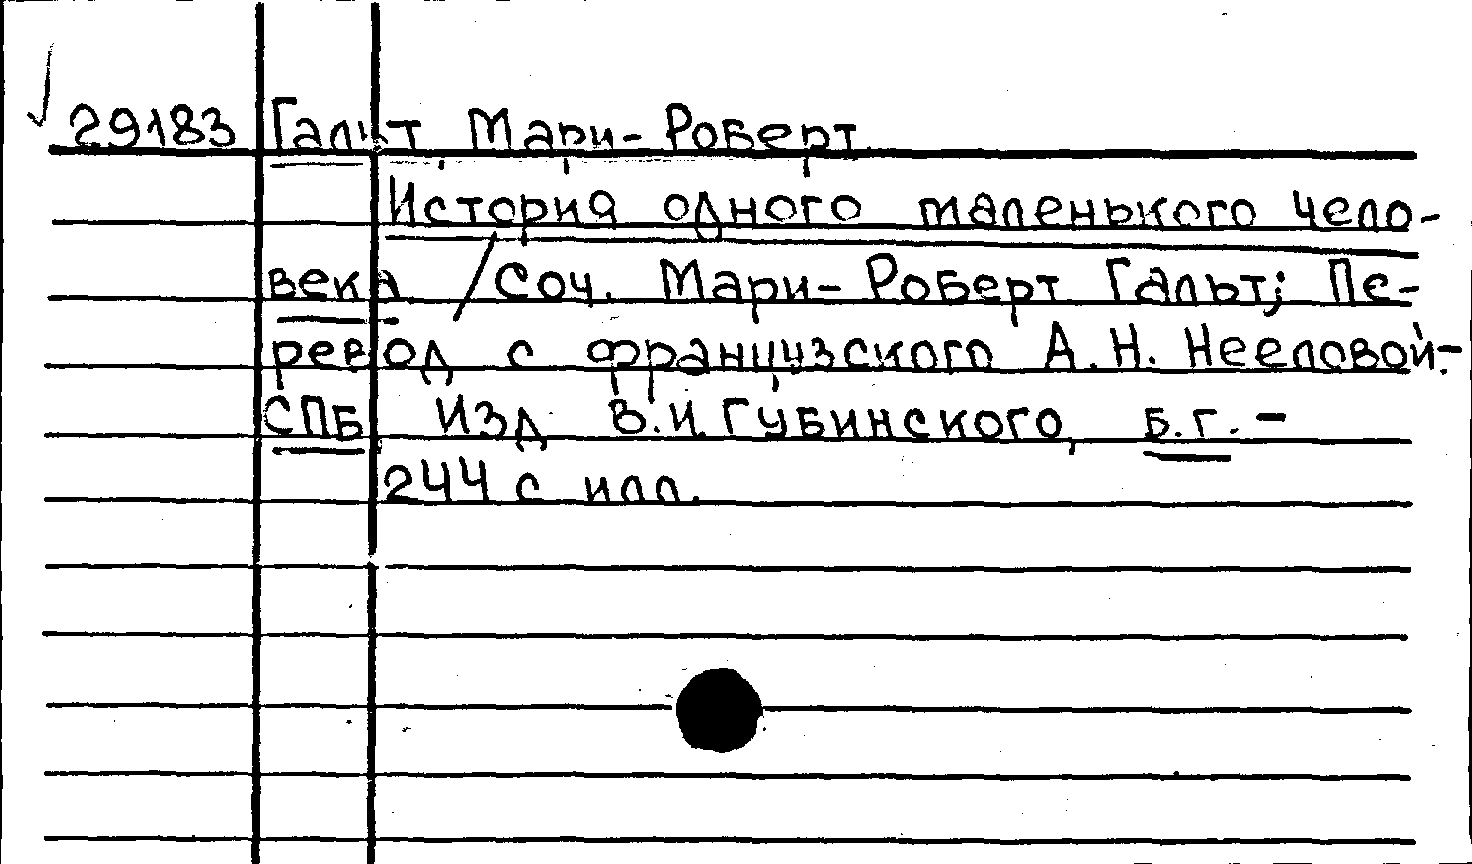 29183 Гальт, Мари-Роберт
История одного маленького чело-
века / Соч. Мари-Роберт Гальт; Пе-
ревод с французского А.Н. Нееловой-
СПБ Изд В.И. Губинского, Б.г. -
244 с илл.